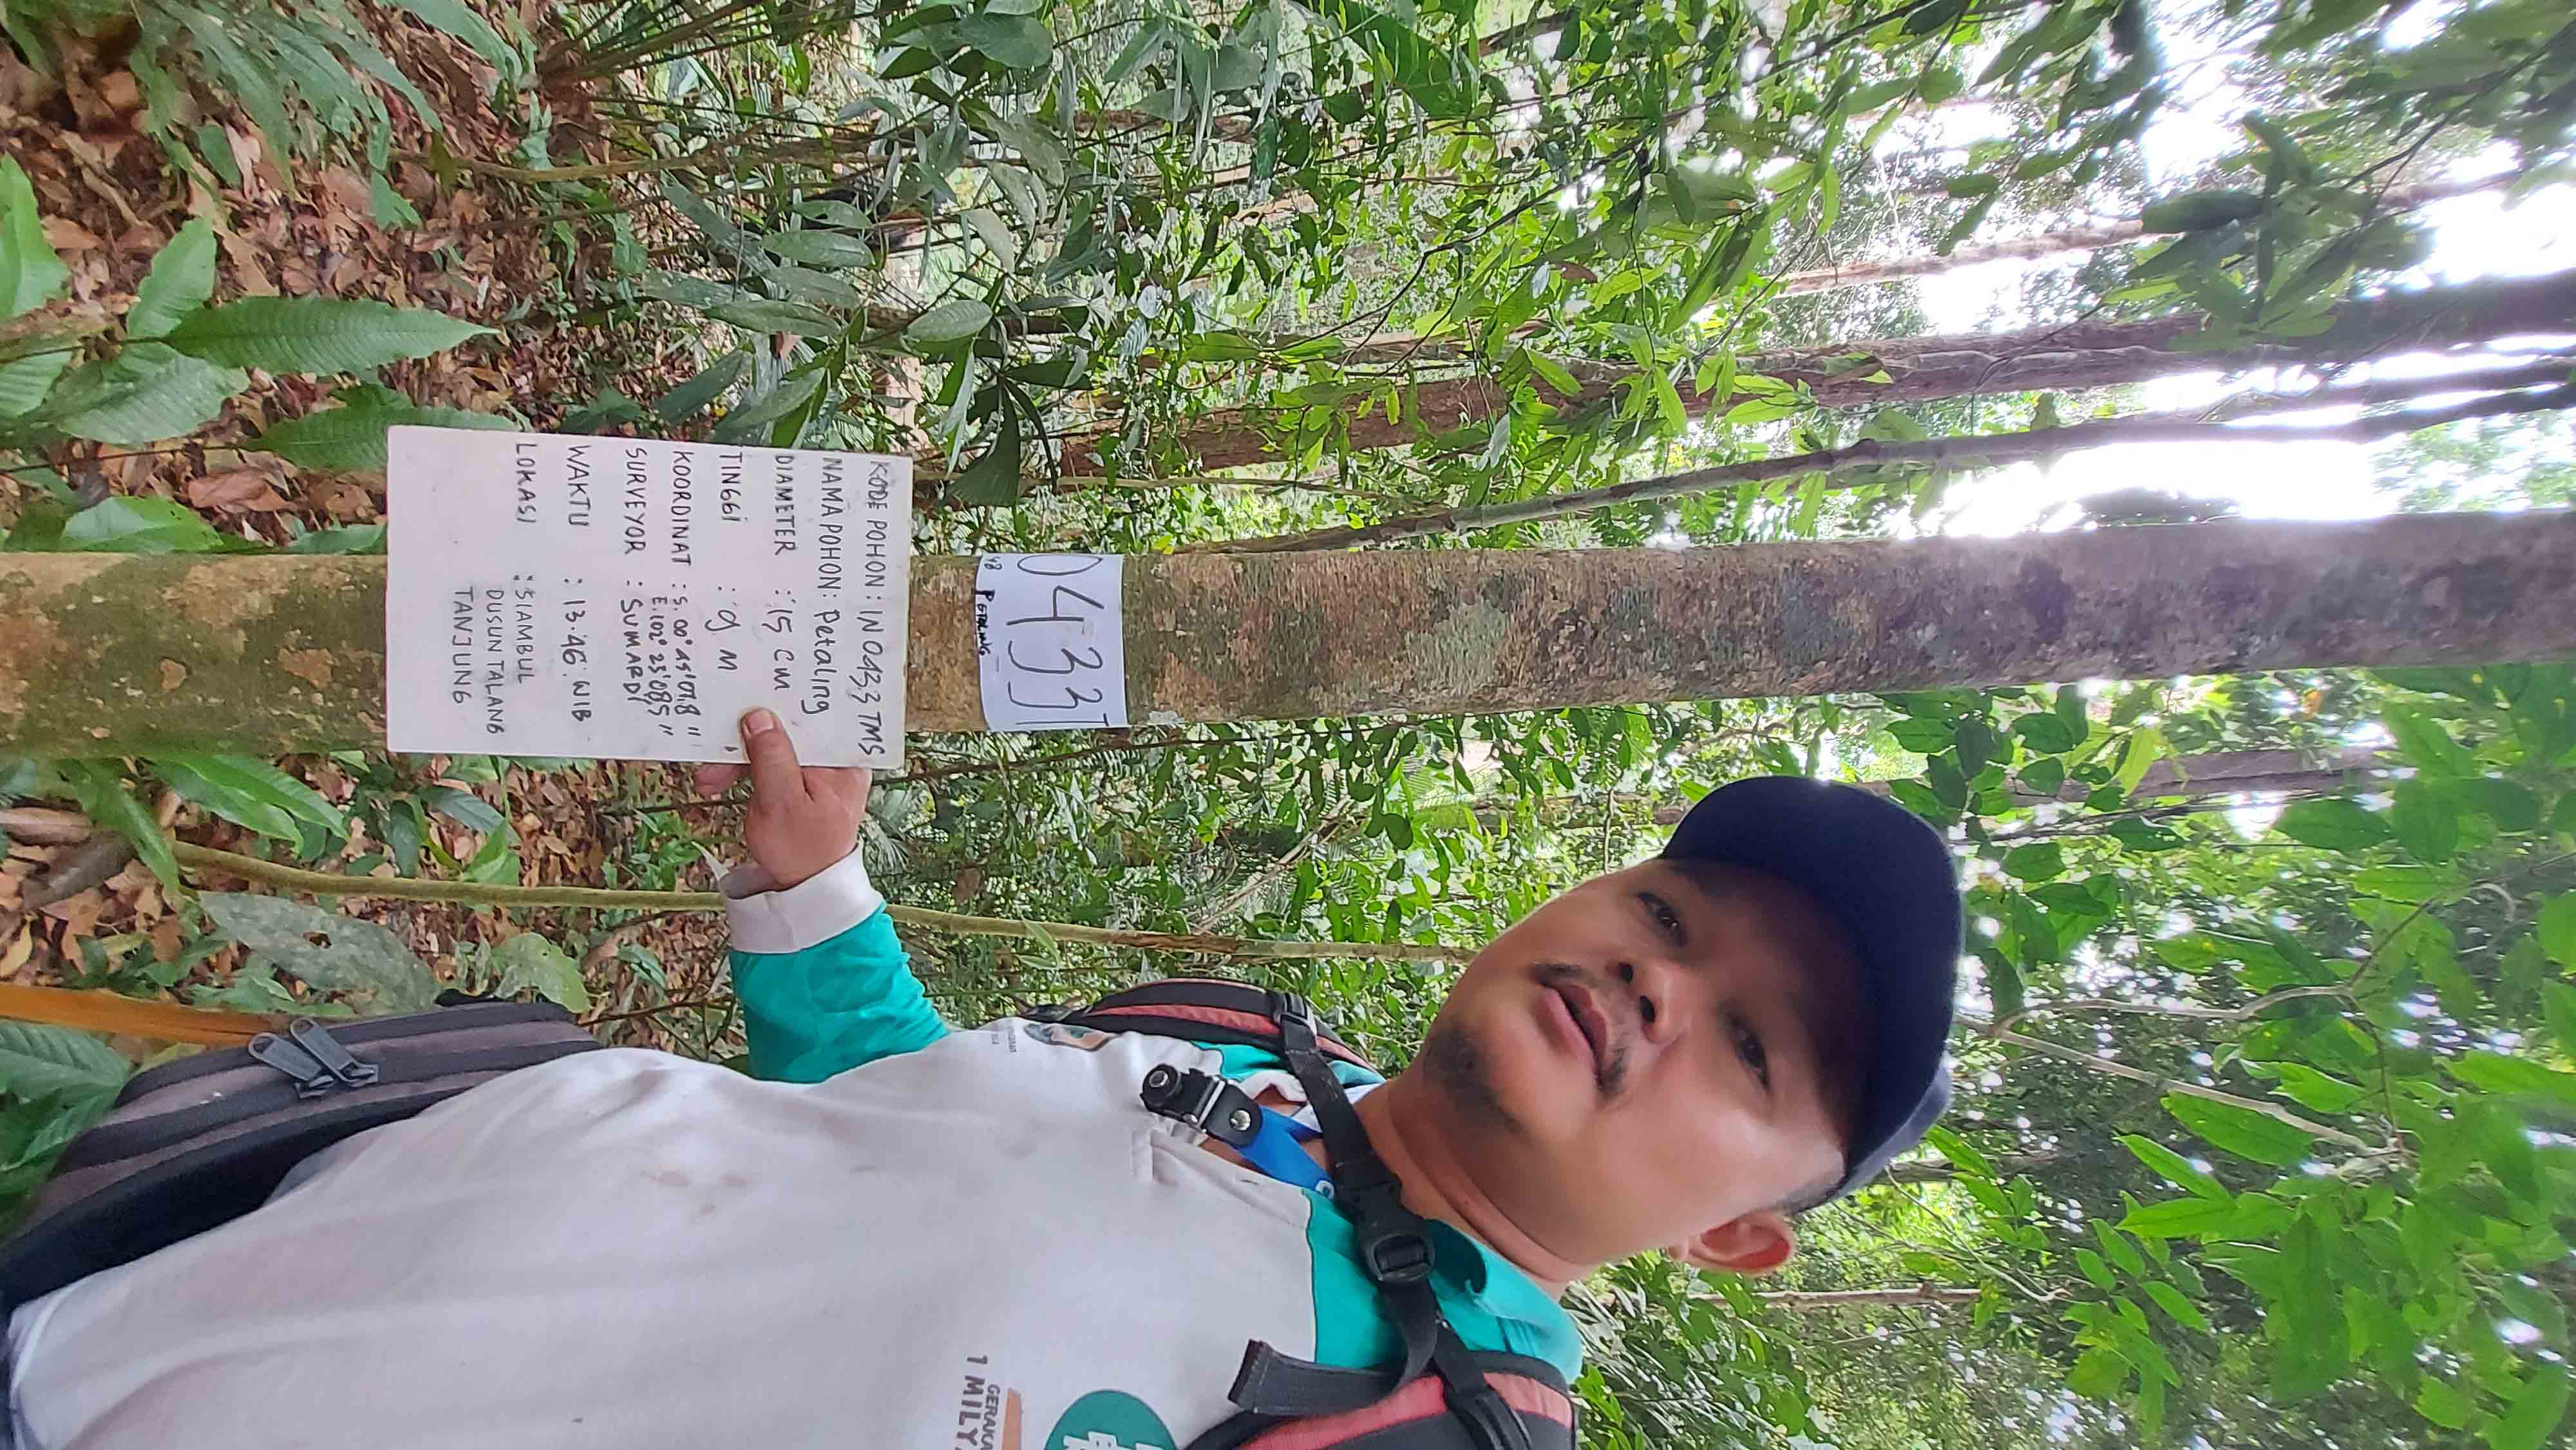 KODE POHON : IN 0433 TMS
NAMA POHON : Petaling
DIAMETER : 15 cm
TINGGI : 9 M
KOORDINAT : S. 00° 45' 018"
E. 102° 25' 085"
SURVEYOR : SUMARDI
WAKTU : 13.46 WIB
LOKASI : SIAMBUL
DUSUN TALANG
TANJUNG
0433
PETALING
1 MILY